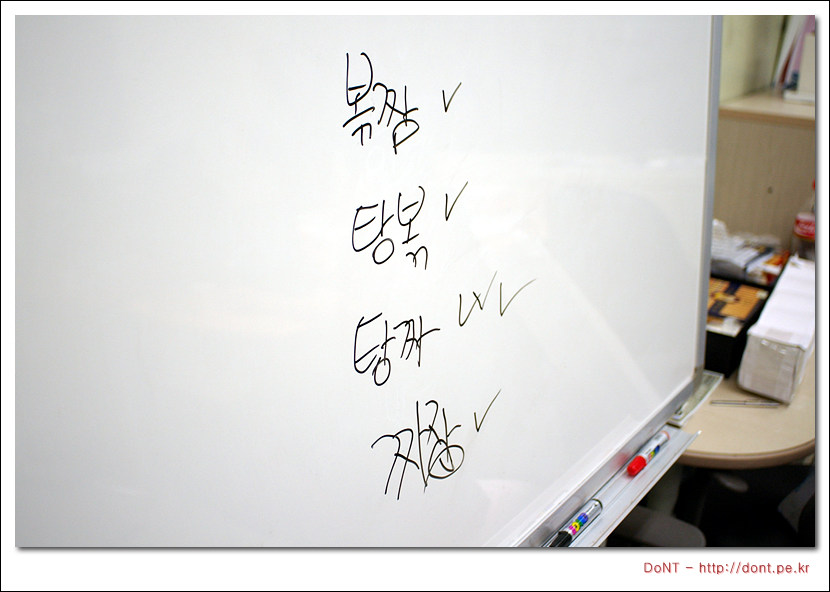 볶짬 ✓
탕볶 ✓
탕짜 ✓✓✓
짜장 ✓
DoNT - http://dont.pe.kr